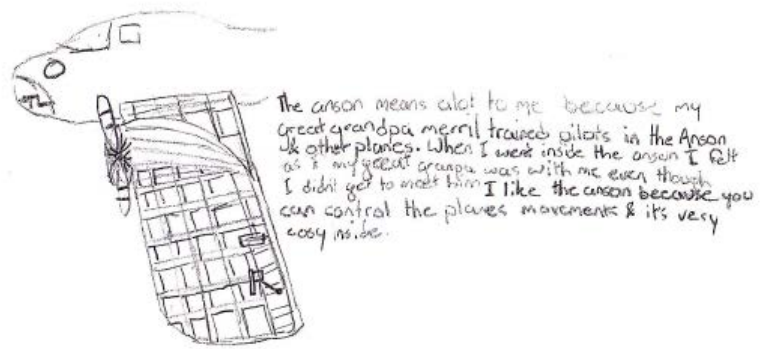 The anson means alot to me because my
great grandpa merril trained pilots in the Anson
& other planes. When I went inside the anson I felt
as if my great granpa was with me even though
I didn't get to meet him I like the anson because you
can control the planes movements & it's very
cosy inside.